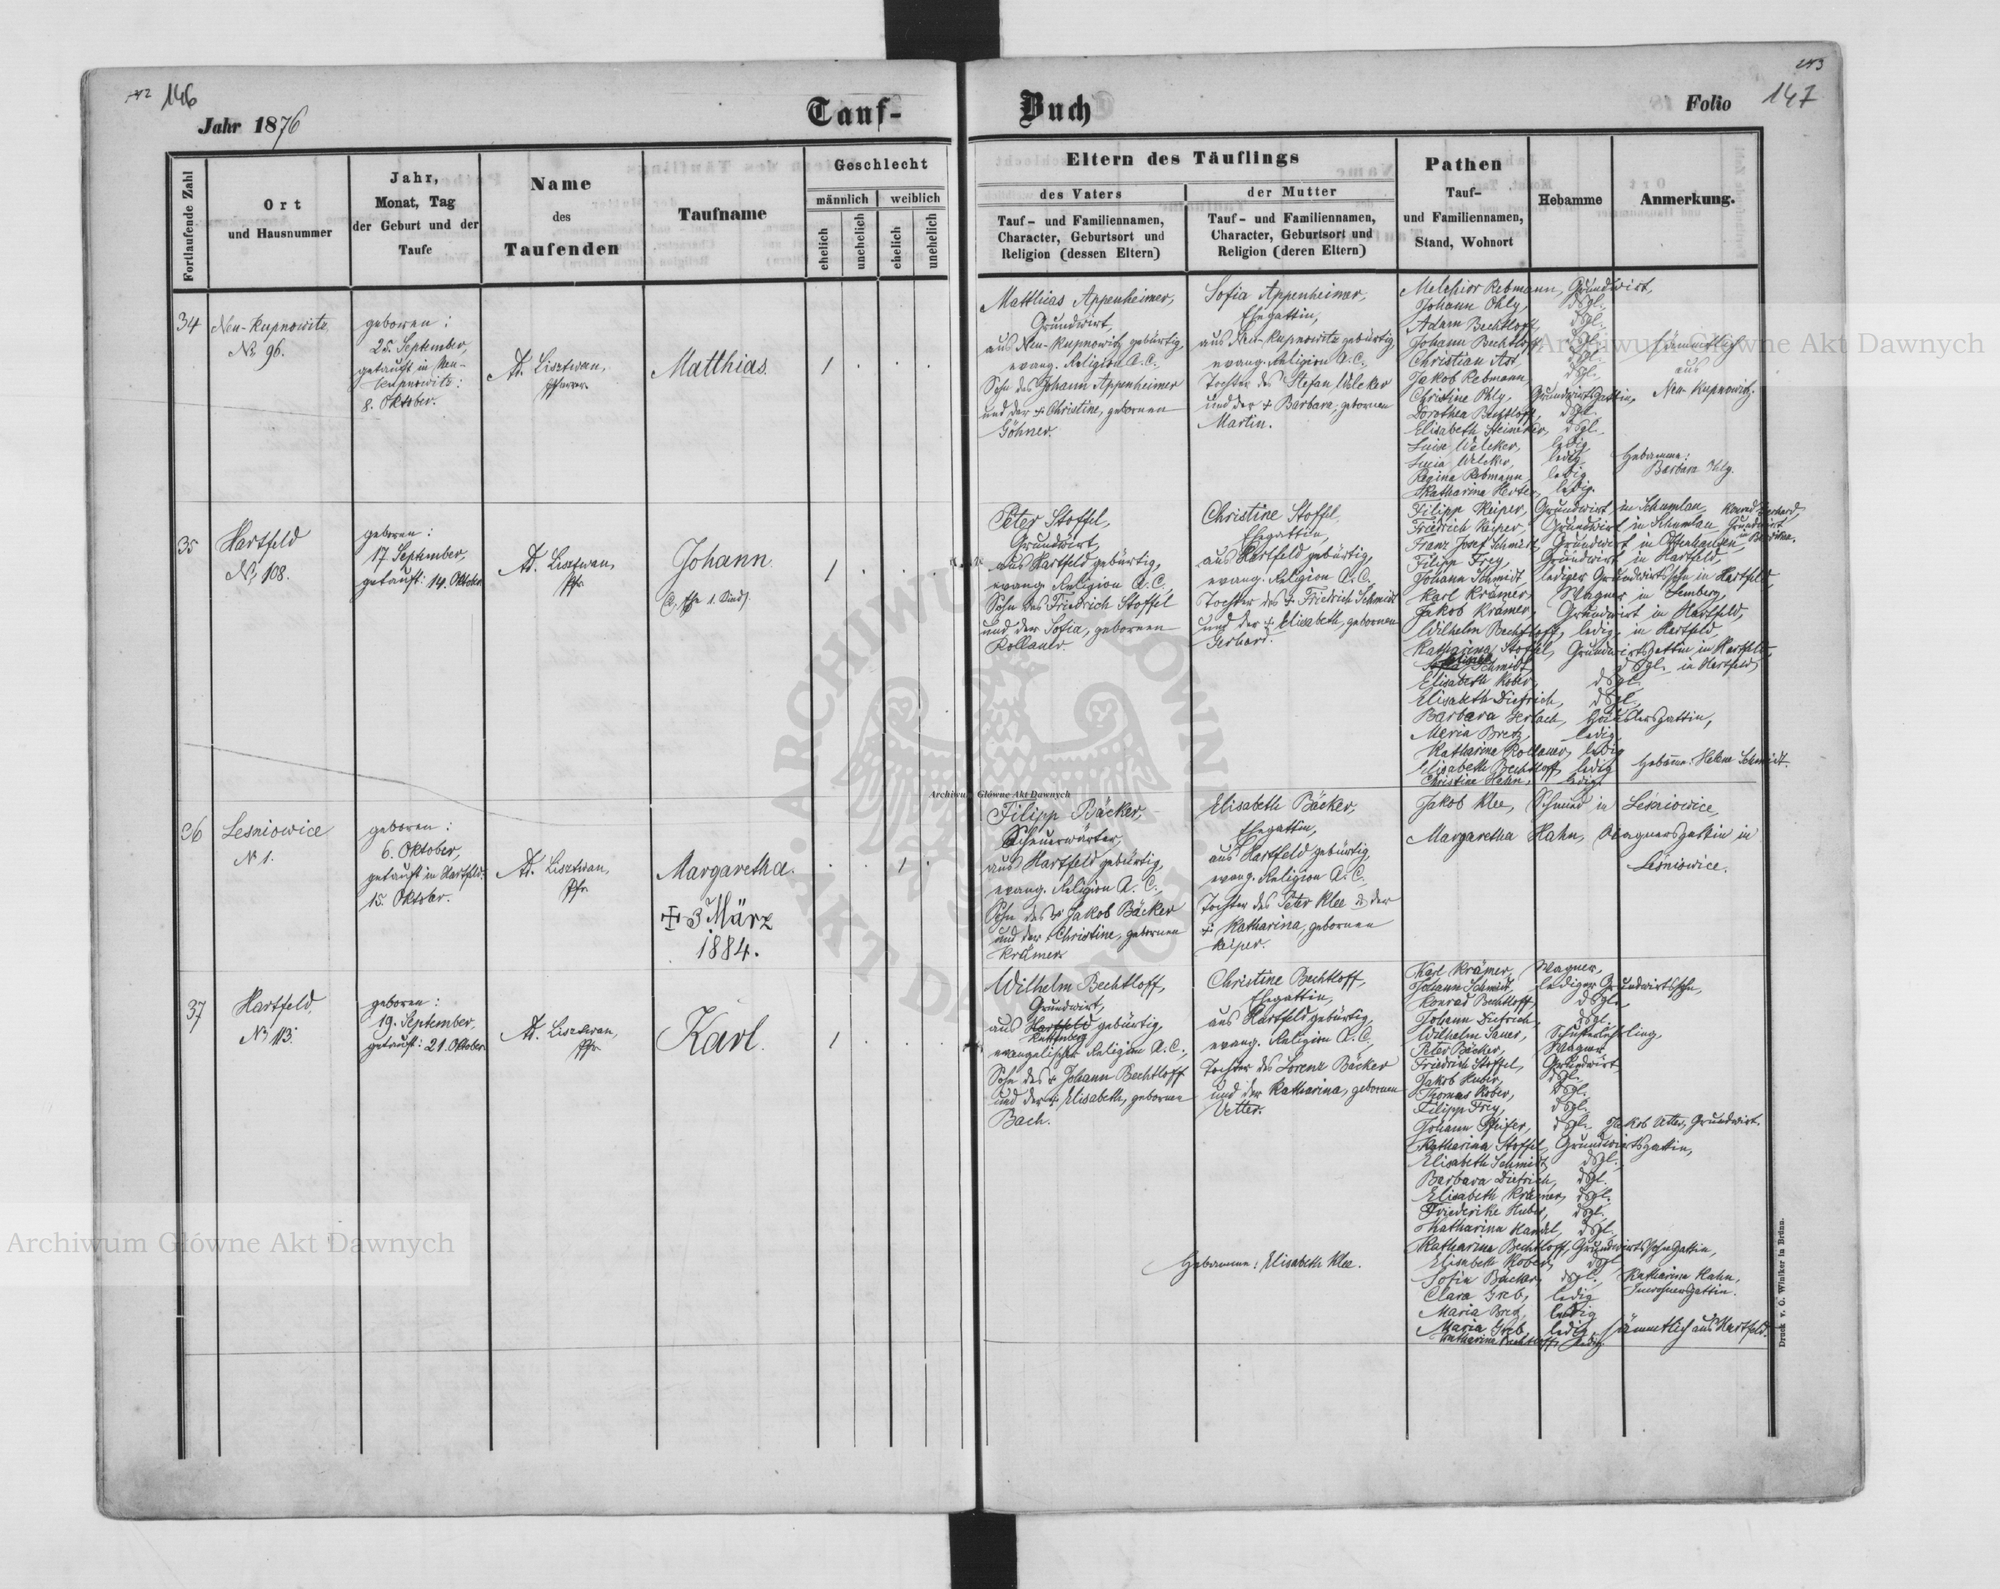 142 146
Jahr 1876
Tauf-
Buch
Folio
243
147
Fortlaufende Zahl
Ort
und Hausnummer
Jahr,
Monat, Tag
der Geburt und der
Taufe
Name
des
Taufenden
Taufname
Geschlecht
männlich
weiblich
ehelich
unehelich
ehelich
unehelich
Eltern des Täuflings
des Vaters
Tauf- und Familiennamen,
Character, Geburtsort und
Religion (dessen Eltern)
der Mutter
Tauf- und Familiennamen,
Character, Geburtsort und
Religion (deren Eltern)
Pathen
Tauf-
und Familiennamen,
Stand, Wohnort
Hebamme
Anmerkung.
34
Neu-Kupnowitz
No 96.
geboren:
25. September,
getauft in Neu-
Kupnowitz:
8. Oktober.
Ad. Lisztwan,
Pfarrer.
Matthias.
1
Matthias Appenheimer,
Grundwirt,
aus Neu-Kupnowitz gebürtig,
evang. Religion A.C.,
Sohn des Johann Appenheimer
und der + Christine, gebornen
Göhner.
Sofia Appenheimer,
Ehegattin,
aus Neu-Kupnowitz gebürtig,
evang. Religion A.C.,
Tochter des Stefan Welcker
und der + Barbara, gebornen
Martin.
Melchior Rebmann, Grundwirt,
Johann Ohly, dsgl.
Adam Bechtloff, dsgl.
Johann Bechtloff, dsgl.
Christian Ast, dsgl.
Jakob Rebmann, dsgl.
Christine Ohly, Grundwirtsgattin,
Dorothea Bechtloff, dsgl.
Elisabeth Steinecker, dsgl.
Luise Welcker, ledig
Lucia Welcker, ledig
Regina Rebmann, ledig
Katharina Herter, ledig.
sämmtlich
aus
Neu Kupnowitz.
Hebamme:
Barbara Ohly.
35
Hartfeld
No 108.
geboren:
17 September,
getauft: 14. Oktober
Ad. Lisztwan,
Pfr.
Johann.
1
Peter Stoffel,
Grundwirt,
aus Hartfeld gebürtig,
evang. Religion A.C.,
Sohn des Friedrich Stoffel
und der Sofia, gebornen
Kollauer.
Christine Stoffel,
Ehegattin,
aus Hartfeld gebürtig,
evang. Religion A.C.,
Tochter des + Friedrich Schmidt
und der + Elisabeth, gebornen
Gerhard.
Filipp Keiper, Grundwirt in Schumlau, Konrad Gerhard,
Friedrich Keiper, Grundwirt in Schumlau, Grundwirt
Franz Josef Schmidt, Grundwirt in Ottenhausen,
Filipp Frey, Grundwirt in Hartfeld,
Johann Schmidt, lediger Grundwirtssohn in Hartfeld,
Karl Krämer, Wagner in Lemberg,
Jakob Krämer, Grundwirt in Hartfeld,
Wilhelm Bechtloff, ledig, in Hartfeld,
Katharina Stoffel, Grundwirtsgattin in Hartfeld,
Schmidt, dsgl. in Hartfeld,
Elisabeth Kober, dsgl.
Elisabeth Dietrich, dsgl.
Barbara Gerlach, Häuslersgattin,
Maria Bretz, ledig
Katharina Kollauer, ledig
Elisabeth Bechtloff, ledig
Christine Hahn, ledig.
Hebamme: Helene Schmidt.
36
Leśniowice
No 1.
geboren:
6. Oktober,
getauft in Hartfeld:
15. Oktober.
Ad. Lisztwan,
Pfr.
Margaretha.
+ 3 März
1884.
1
Filipp Bäcker,
Scheuerwärter,
aus Hartfeld gebürtig,
evang. Religion A.C.,
Sohn des + Jakob Bäcker
und der + Christine, gebornen
Krämer.
Elisabeth Bäcker,
Ehegattin,
aus Hartfeld gebürtig,
evang. Religion A.C.,
Tochter des Peter Klee & der
+ Katharina, gebornen
Keiper.
Jakob Klee, Schmied in Leśniowice,
Margaretha Hahn, Wagnersgattin in
Leśniowice.
37
Hartfeld,
No 113.
geboren:
19. September,
getauft: 21. Oktober.
Ad. Lisztwan,
Pfr.
Karl.
1
Wilhelm Bechtloff,
Grundwirt,
aus Hartfeld gebürtig,
Rottenberg
evangelischer Religion A.C.,
Sohn des + Johann Bechtloff
und der + Elisabeth, gebornen
Bach.
Christine Bechtloff,
Ehegattin,
aus Hartfeld gebürtig,
evang. Religion A.C.,
Tochter des Lorenz Bäcker
und der Katharina, gebornen
Vetter.
Karl Krämer, Wagner,
Johann Schmidt, lediger Grundwirtssohn,
Konrad Bechtloff, dsgl.
Johann Dietrich, dsgl.
Wilhelm Sauer, Schusterlehrling,
Peter Bäcker, Wagner
Friedrich Stoffel, Grundwirt,
Jakob Huber, dsgl.
Thomas Kober, dsgl.
Filipp Frey, dsgl.
Johann Pfeifer, dsgl. Jakob Grundwirt.
Katharina Stoffel, Grundwirtsgattin,
Elisabeth Schmidt, dsgl.
Barbara Dietrich, dsgl.
Elisabeth Krämer, dsgl.
Friederike Huber, dsgl.
Katharina Handel, dsgl.
Katharina Bechtloff, Grundwirtssohngattin,
Elisabeth Kober, dsgl.
Sofia Bäcker, dsgl. Katharina Hahn,
Clara Greb, ledig Inwohnersgattin.
Maria Bretz, ledig
Maria Greb, ledig, sämmtlich aus Hartfeld.
Katharina Bechtloff, ledig
Hebamme: Elisabeth Klee.
Druck v. G. Winiker in Brünn.
Archiwum Główne Akt Dawnych
Archiwum Główne Akt Dawnych
Archiwum Główne Akt Dawnych